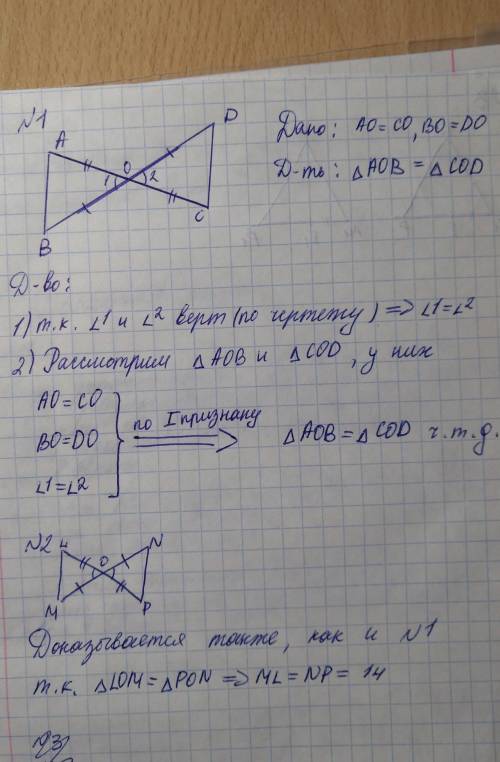 N1
A
D
O
1
2
B
C
Дано: AO=CO, BO=DO
Д-ть: △AOB = △COD
Д-во:
1) т.к. ∠1 и ∠2 верт (по чертежу) => ∠1=∠2
2) Рассмотрим △AOB и △COD, у них
AO=CO
BO=DO
∠1=∠2
по I признаку
△AOB=△COD ч.т.д.
N2
L
N
O
M
P
Доказывается также, как и N1
т.к. △LOM=△PON => ML=NP= 14
N3